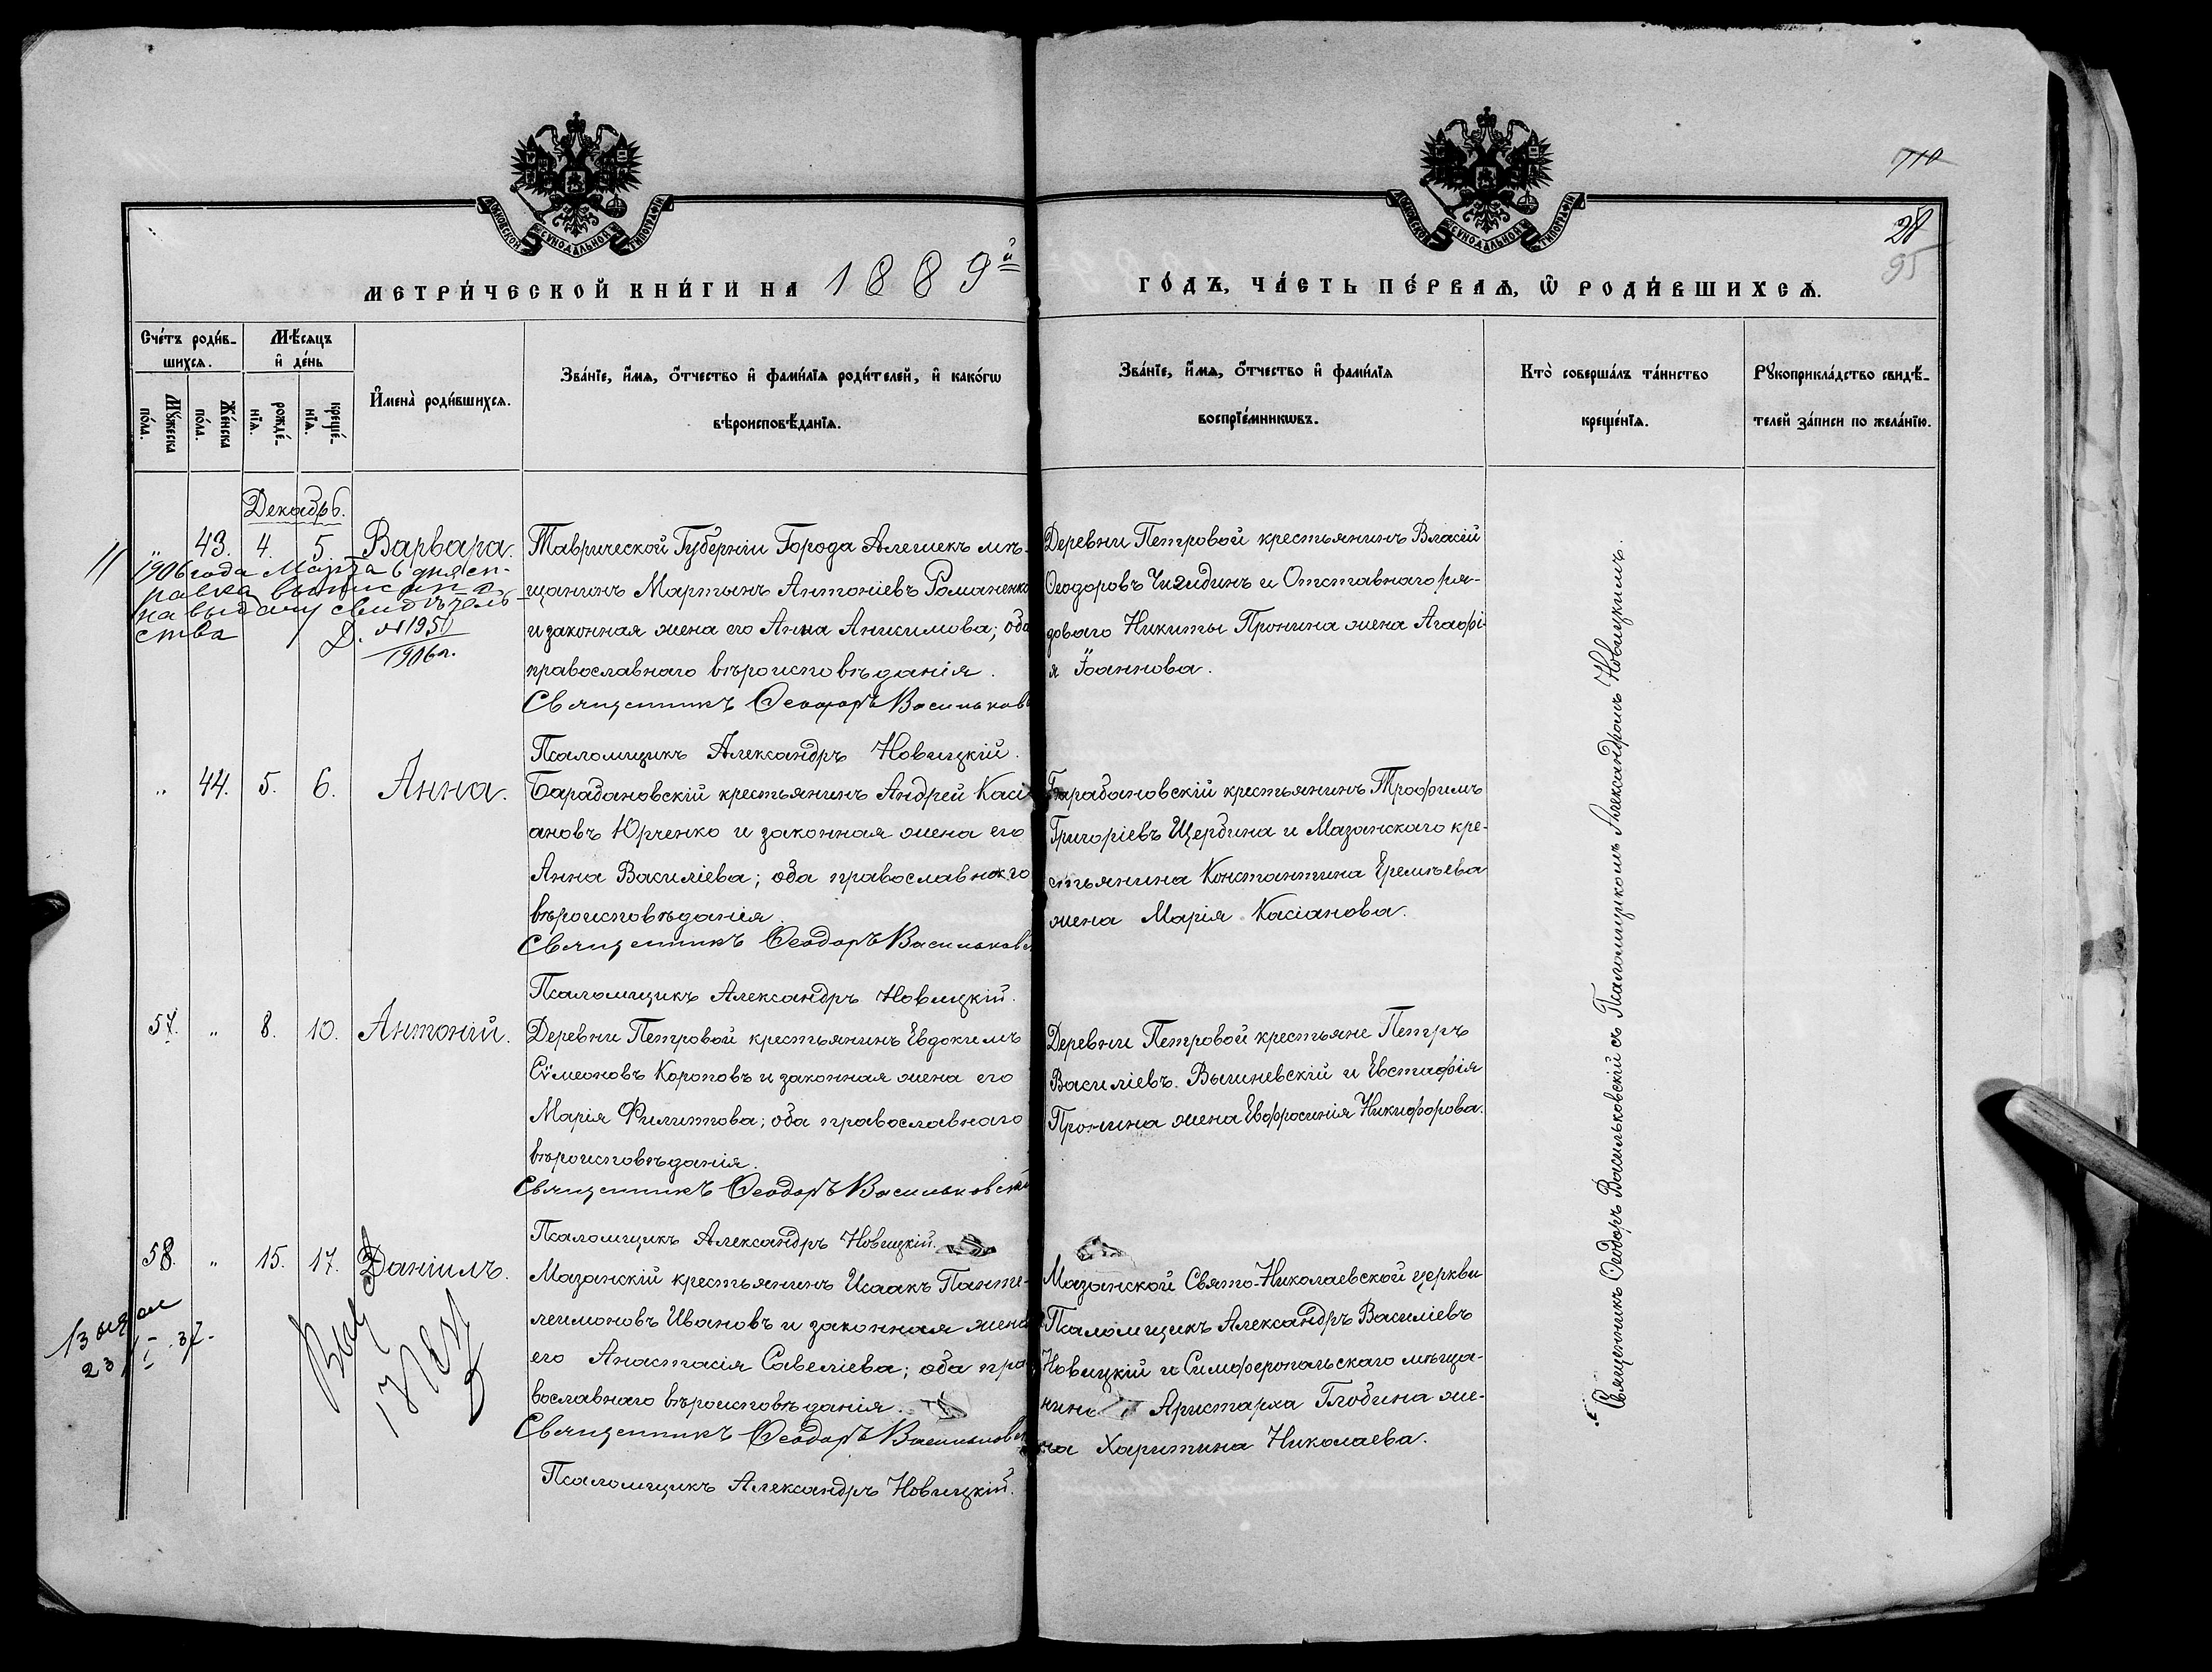 710
28
95
МОСКОВСКОЙ СѴНОДАЛЬНОЙ ТИПОГРАФІИ
МОСКОВСКОЙ СѴНОДАЛЬНОЙ ТИПОГРАФІИ
МЕТРИ́ЧЕСКОЙ КНИ́ГИ НА 1889й
ГО́ДЪ, ЧА́СТЬ ПЕ́РВАѦ, Ѽ РОДИ́ВШИХСѦ.
Сче́тъ роди́в-
шихсѧ.
Мѣ́сѧцъ
и҆ де́нь
Мꙋ́жеска
по́ла.
Же́нска
по́ла.
рожде́-
нїѧ.
креще́-
нїѧ.
И҆мена̀ роди́вшихсѧ.
Зва́нїе, и҆́мѧ, о҆́тчество и҆ фами́лїѧ роди́телей, и҆ како́гѡ
вѣроисповѣ́данїѧ.
Зва́нїе, и҆́мѧ, о҆́тчество и҆ фами́лїѧ
воспрїе́мникѡвъ.
Кто̀ соверша́лъ та́инство
креще́нїѧ.
Рꙋкоприкла́дство свидѣ́-
телей за́писи по жела́нїю.
Декабрь.
" 43. 4. 5. Варвара.
Таврической Губерніи Города Алешекъ мѣ-
щанинъ Мартынъ Антоніевъ Романенко
и законная жена его Анна Анисимова; оба
православнаго вѣроисповѣданія.
Священникъ Ѳеодоръ Васильков
Псаломщикъ Александръ Новицкій.
Деревни Петровой крестьянинъ Власій
Ѳеодоровъ Чигидинъ и Отставнаго ря-
доваго Никиты Пронина жена Агаѳі-
я Іоаннова.
1906 года Марта 6 дня сп-
равка выписана
на выдачу свидѣтель-
ства
Д. №195
1906 г.
" 44. 5. 6. Анна.
Барабановскій крестьянинъ Андрей Касі
ановъ Юрченко и законная жена его
Анна Василіева; оба православнаго
вѣроисповѣданія.
Священникъ Ѳеодоръ Васильковс
Псаломщикъ Александръ Новицкій.
Барабановскій крестьянинъ Трофимъ
Григоріевъ Щербина и Мазанскаго кре-
стьянина Константина Еремѣева
жена Марія Касіанова.
57. " 8. 10. Антоній.
Деревни Петровой крестьянинъ Евдокимъ
Сѵмеоновъ Короповъ и законная жена его
Марія Филиппова; оба православнаго
вѣроисповѣданія.
Священникъ Ѳеодоръ Васильковскі
Псаломщикъ Александръ Новицкій.
Деревни Петровой крестьяне Петръ
Василіевъ Вышневскій и Евстафія
Пронина жена Евфросинія Никифорова.
58. " 15. 17. Даніилъ.
Мазанскій крестьянинъ Исаакъ Панте-
леимоновъ Ивановъ и законная жена
его Анастасія Савеліева; оба пра
вославнаго вѣроисповѣданія.
Священникъ Ѳеодоръ Васильковс
Псаломщикъ Александръ Новицкій.
Мазанской Свято-Николаевской церкви
Псаломщикъ Александръ Василіевъ
Новицкій и Симферопольскаго мѣща-
нина Аристарха Глобина же-
на Харитина Николаева.
Священникъ Ѳеодоръ Васильковскій съ Псаломщикомъ Александромъ Новицкимъ.